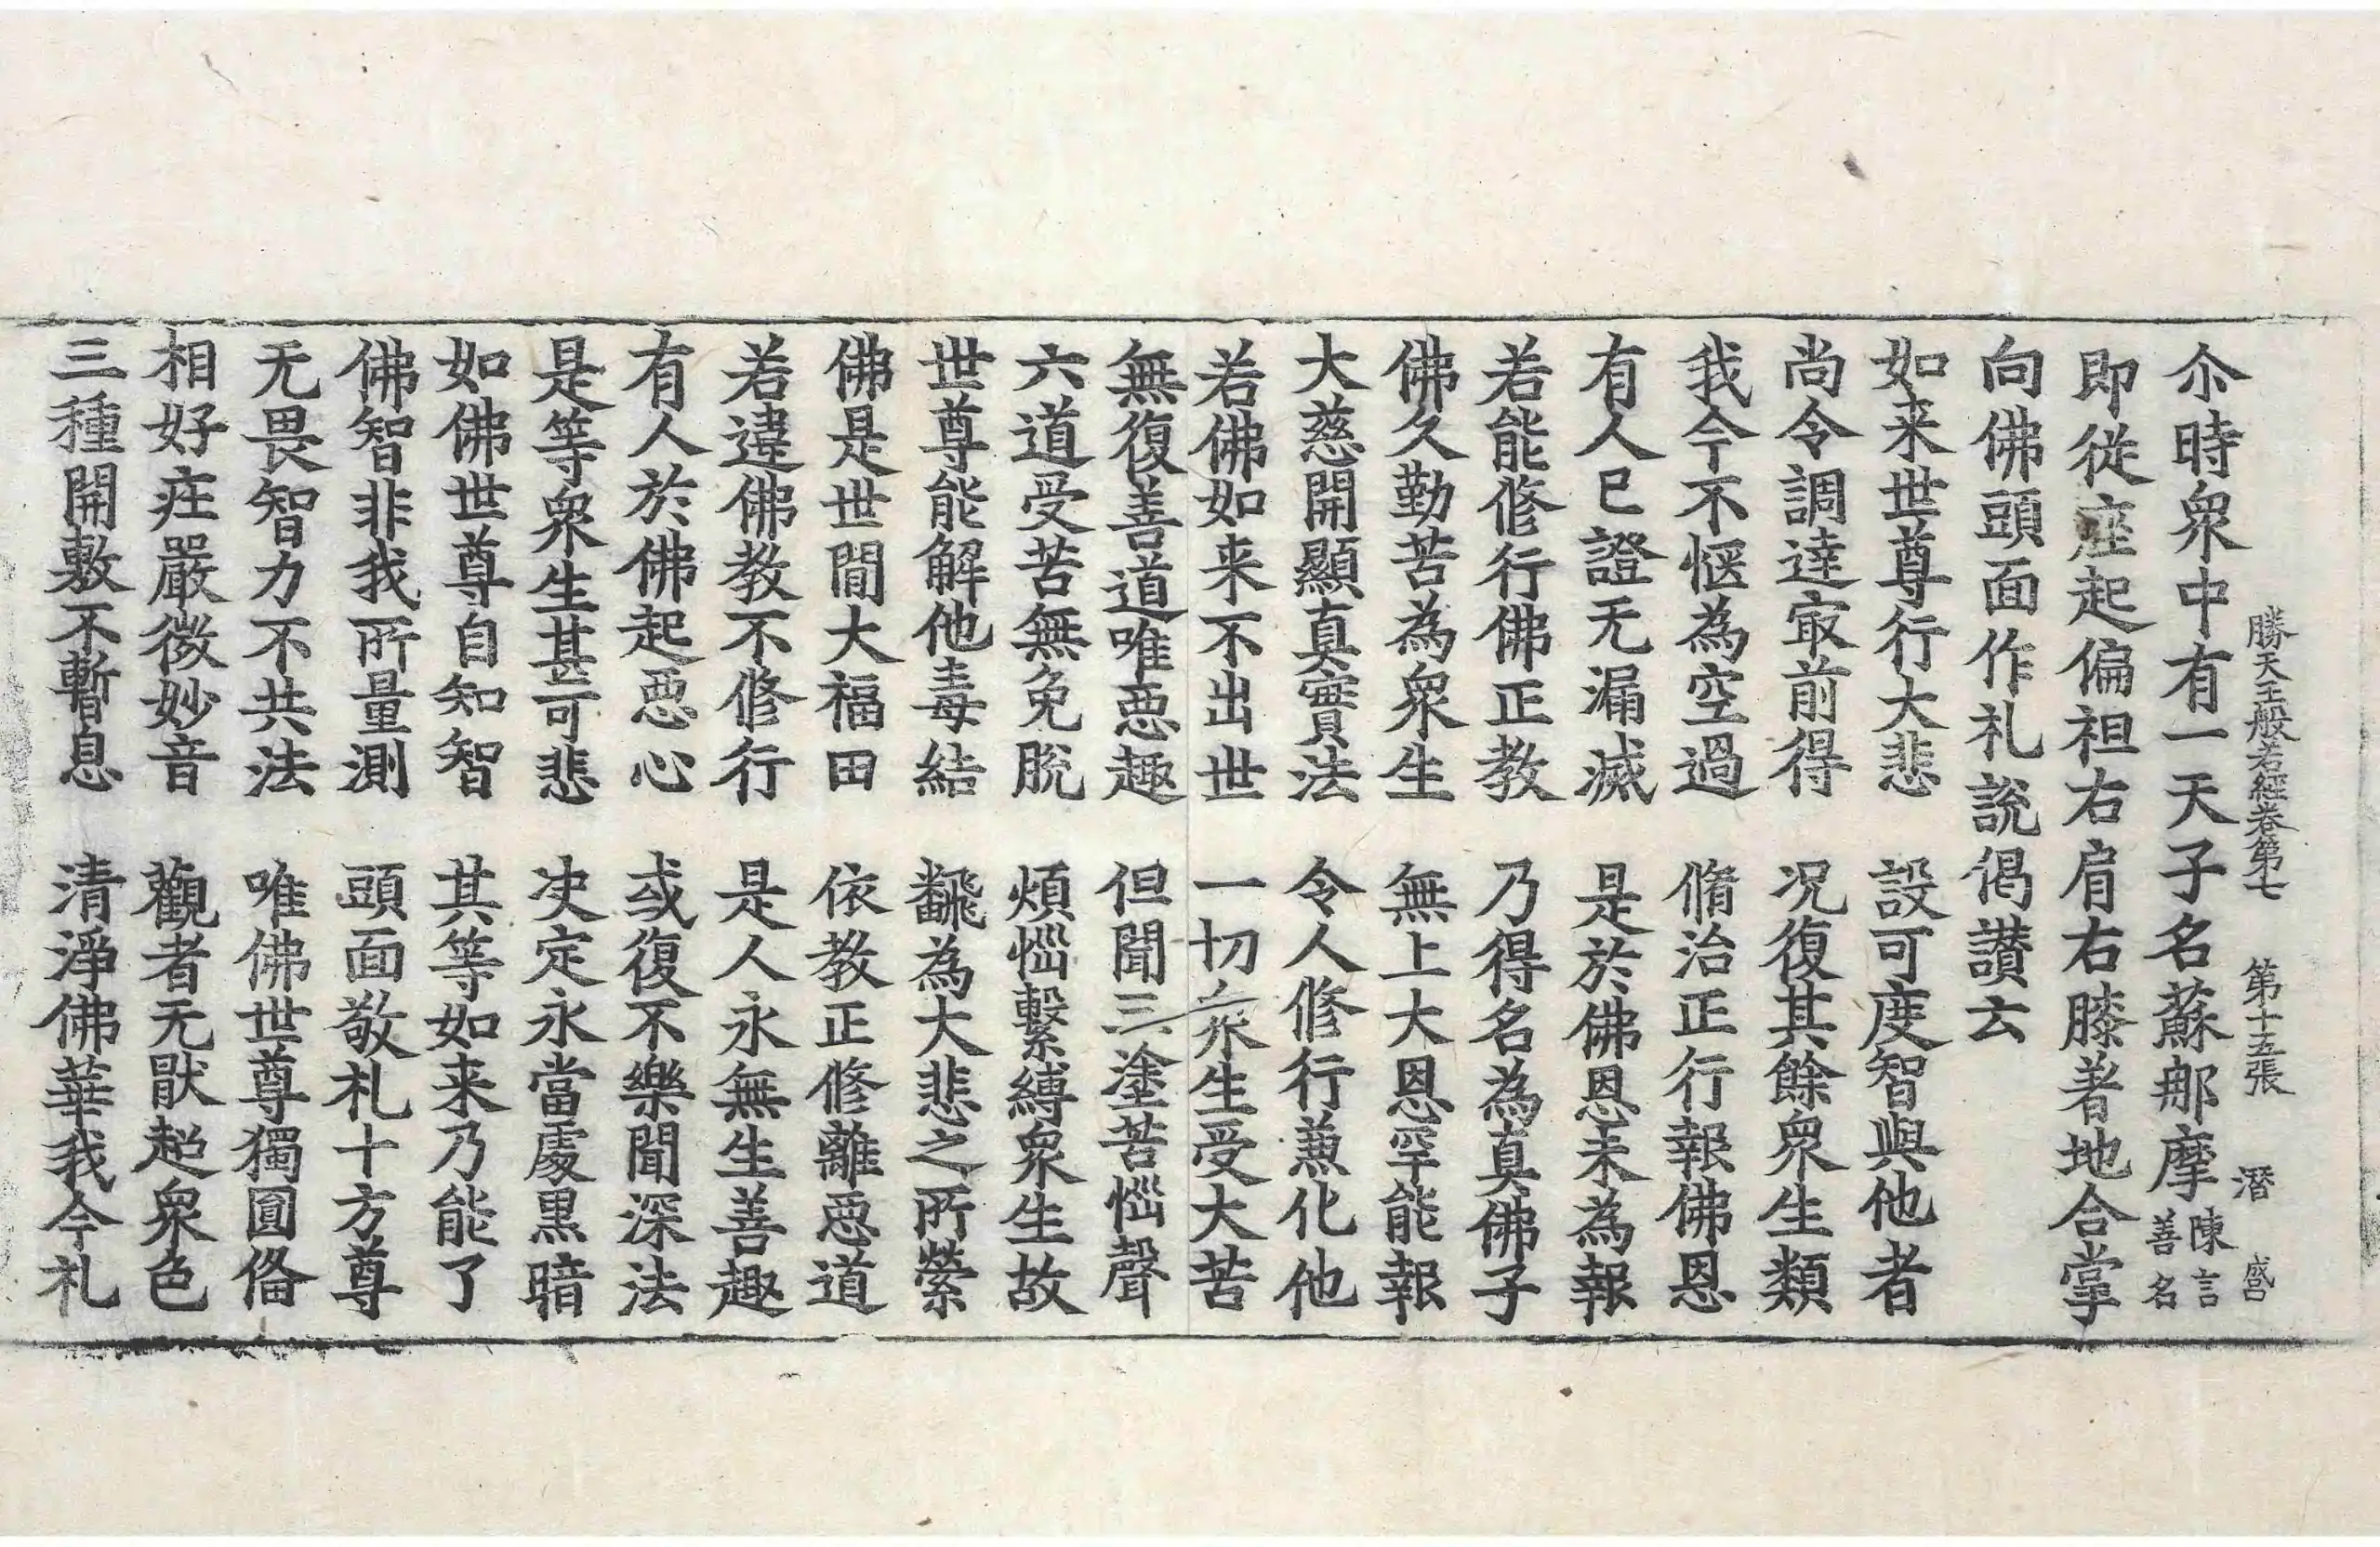 勝天王般若經卷第七　第十五張　潛　盛
尒時衆中有一天子名蘇𨚗摩陳言善名
即從座起偏袒右肩右膝著地合掌
向佛頭面作礼說偈讃云
如来世尊行大悲　設可度智與他者
尚令調達㝡前得　况復其餘衆生類
我今不惬為空過　脩治正行報佛恩
有人已證无漏滅　是於佛恩未為報
若能修行佛正教　乃得名為真佛子
佛久勤苦為衆生　無上大恩罕能報
大慈開顯真實法　令人修行兼化他
若佛如来不出世　一切众生受大苦
無復善道唯惡趣　但聞三塗苦惱聲
六道受苦無免脫　煩惱繫縛衆生故
世尊能解他毒結　飜為大悲之所縈
佛是世間大福田　依教正修離惡道
若違佛教不修行　是人永無生善趣
有人於佛起惡心　或復不樂聞深法
是等衆生甚可悲　决定永當處黒暗
如佛世尊自知智　其等如来乃能了
佛智非我所量測　頭面敬礼十方尊
无畏智力不共法　唯佛世尊獨圓俻
相好庄嚴微妙音　觀者无猒超衆色
三種開敷不暫息　清淨佛華我今礼